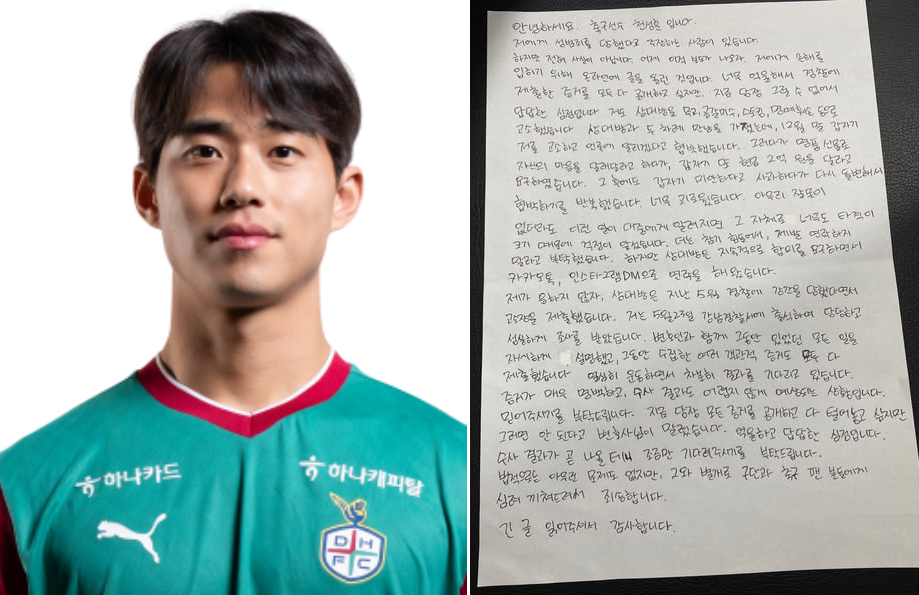 하나카드
하나캐피탈
DH
FC
안녕하세요. 축구선수 천성훈 입니다.
저에게 성범죄를 당했다고 주장하는 사람이 있습니다.
하지만 전혀 사실이 아닙니다. 어제 이적 보도가 나오자, 저에게 손해를
입히기 위해 온라인에 글을 올린 것입니다. 너무 억울해서 경찰에
제출한 증거를 모두 다 공개하고 싶지만, 지금 당장 그럴 수 없어서
답답한 심정입니다. 저도 상대방을 무고, 공갈미수, 스토킹, 명예훼손 등으로
고소했습니다. 상대방과 두 차례 만남을 가졌는데, 12월 말 갑자기
저를 고소하고 언론에 알리겠다고 협박했습니다. 그러다가 명품 선물로
자신의 마음을 달래달라고 하다가, 갑자기 또 현금 2억 원을 달라고
요구하였습니다. 그 후에도 갑자기 미안하다고 사과하다가 다시 돌변해서
협박하기를 반복했습니다. 너무 괴로웠습니다. 아무리 잘못이
없더라도 이런 일이 대중에게 알려지면 그 자체로 너무도 타격이
크기 때문에 걱정이 앞섰습니다. 너무 힘들어서, 제발 연락하지
말라고 부탁했습니다. 하지만 상대방은 지속적으로 합의를 요구하면서
카카오톡, 인스타그램DM으로 연락을 해왔습니다.
제가 응하지 않자, 상대방은 지난 5월 경찰에 강간을 당했다면서
고소장을 제출했습니다. 저는 5월23일 강남경찰서에 출석하여 당당하고
성실하게 조사를 받았습니다. 변호인과 함께 그동안 있었던 모든 일을
자세하게 설명했고, 그동안 수집한 여러 객관적 증거도 모두 다
제출했습니다 열심히 운동하면서 차분히 결과를 기다리고 있습니다.
증거가 매우 명백하고, 수사 결과도 어렵지 않게 예상되는 상황입니다.
믿어주시기를 부탁드립니다. 지금 당장 모든 증거를 공개하고 다 털어놓고 싶지만
그러면 안 된다고 변호사님이 말렸습니다. 억울하고 답답한 심정입니다.
수사 결과가 곧 나올 테니 조금만 기다려주세기를 부탁드립니다.
법적으로는 아무런 문제도 없지만, 그와 별개로 구단과 축구 팬 분들에게
심려 끼쳐드려서 죄송합니다.
긴 글 읽어주셔서 감사합니다.